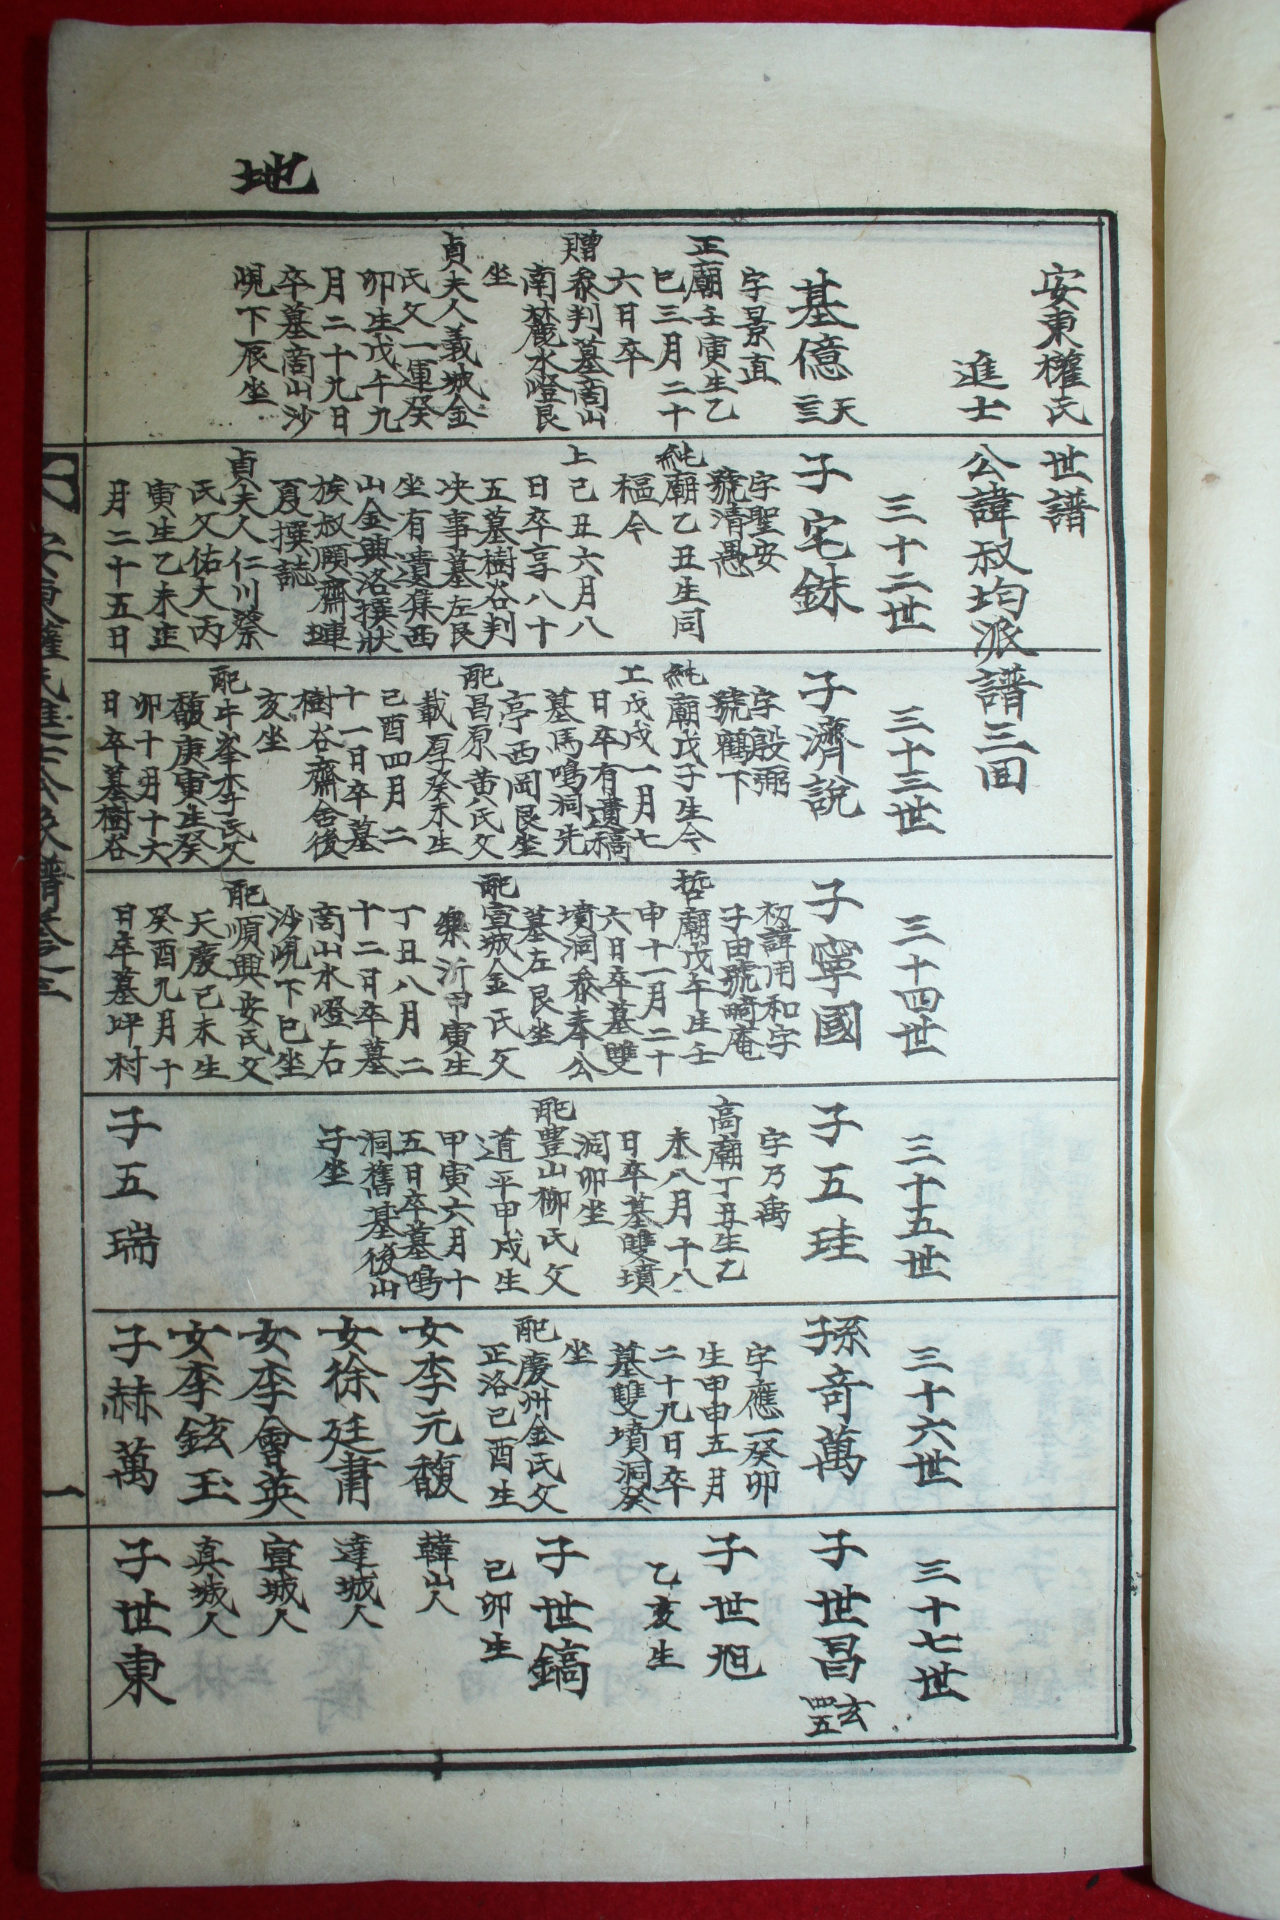 地
安東權氏世譜
進士公諱叔均派譜三回
基億 天
字景直
正廟壬寅生乙
巳三月二十
六日卒
贈叅判墓商山
南麓水燈艮
坐
貞夫人義城金
氏父一運癸
卯生戊午九
月二十九日
卒墓商山沙
峴下辰坐
三十二世
子宅銖
字聖安
號清愚
純廟乙丑生同
樞今
上己丑六月八
日卒享八十
五墓樹谷判
决事墓左艮
坐有遺集西
山金興洛撰狀
族叔顧齋璉
夏撰誌
貞夫人仁川蔡
氏父佑大丙
寅生乙未正
月二十五日
三十三世
子濟說
字殷弼
號觀下
純廟戊子生今
上戊戌一月七
日卒有遺稿
墓馬鳴洞先
亭西岡艮坐
配昌原黄氏父
載厚癸未生
己酉四月二
十一日卒墓
樹谷齋舍後
亥坐
配牛峯李氏父
馥庚寅生癸
卯十月十六
日卒墓樹谷
三十四世
子寧國
初諱用和字
子由號畸庵
哲廟戊午生壬
申十一月二十
六日卒墓雙
墳洞叅奉公
墓左艮坐
配宣城金氏父
樂沂甲寅生
丁丑八月二
十二日卒墓
商山水燈右
沙峴下巳坐
配順興安氏父
天慶己未生
癸酉九月十
日卒墓坪村
三十五世
子五珪
字乃禹
高廟丁丑生乙
未八月十八
日卒墓雙墳
洞卯坐
配豊山柳氏父
道平甲戌生
甲寅六月十
五日卒墓鳴
洞舊基後山
子坐
子五瑞
三十六世
孫奇萬
字應一癸卯
生甲申五月
二十九日卒
墓雙墳洞癸
坐
配慶州金氏父
正洛己酉生
女李元馥
女徐廷肅
女李會英
女李鉉玉
子赫萬
三十七世
子世昌 玄四五
子世旭
乙亥生
子世鎬
己卯生
韓山人
達城人
宣城人
真城人
子世東
一